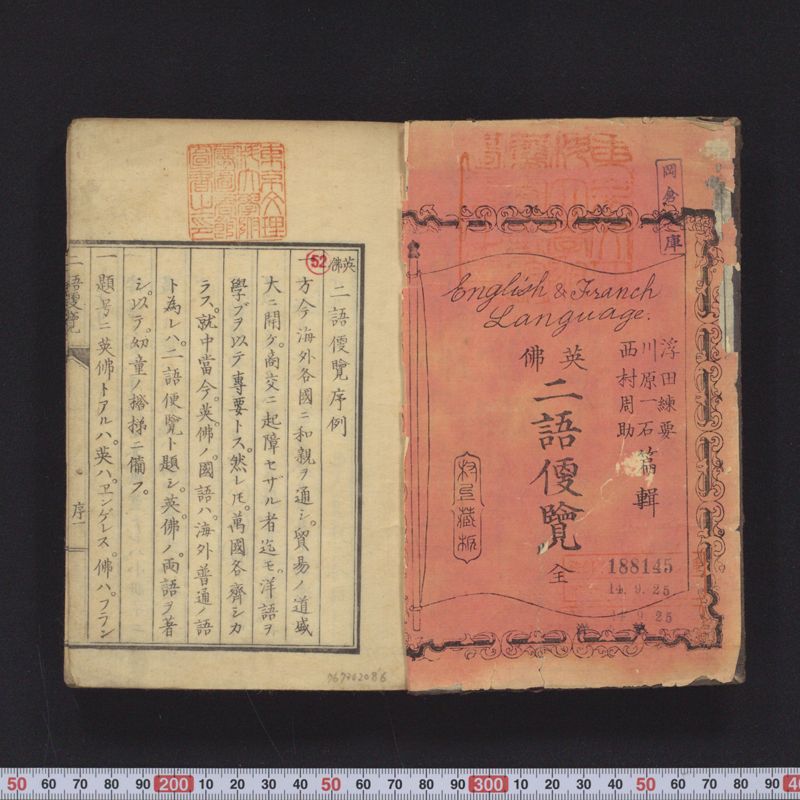 岡倉文庫
English & Franch
Language.
浮田練要
川原一石
西村周助
篇輯
英佛
二語便覽
全
188145
14.9.25
14.9.25
52
英佛
二語便覽序例
方今海外各國ニ和親ヲ通シ。貿易ノ道盛
大ニ開ケ。商交ニ起障セザル者迄モ。洋語ヲ
學ブヲ以テ專要トス。然レ𪜈。萬國各齊シカ
ラス。就中當今。英。佛ノ國語ハ。海外普通ノ語
ト為レハ。二語便覽ト題シ。英。佛ノ両語ヲ著
シ。以テ。幼童ノ楷梯ニ備フ。
一題号ニ英佛トアルハ。英ハ。ヱンゲレス。佛ハ。フラン
二語便覽
序一
767902086
50 60 70 80 90 200 10 20 30 40 50 60 70 80 90 300 10 20 30 40 50 60 70 80 90